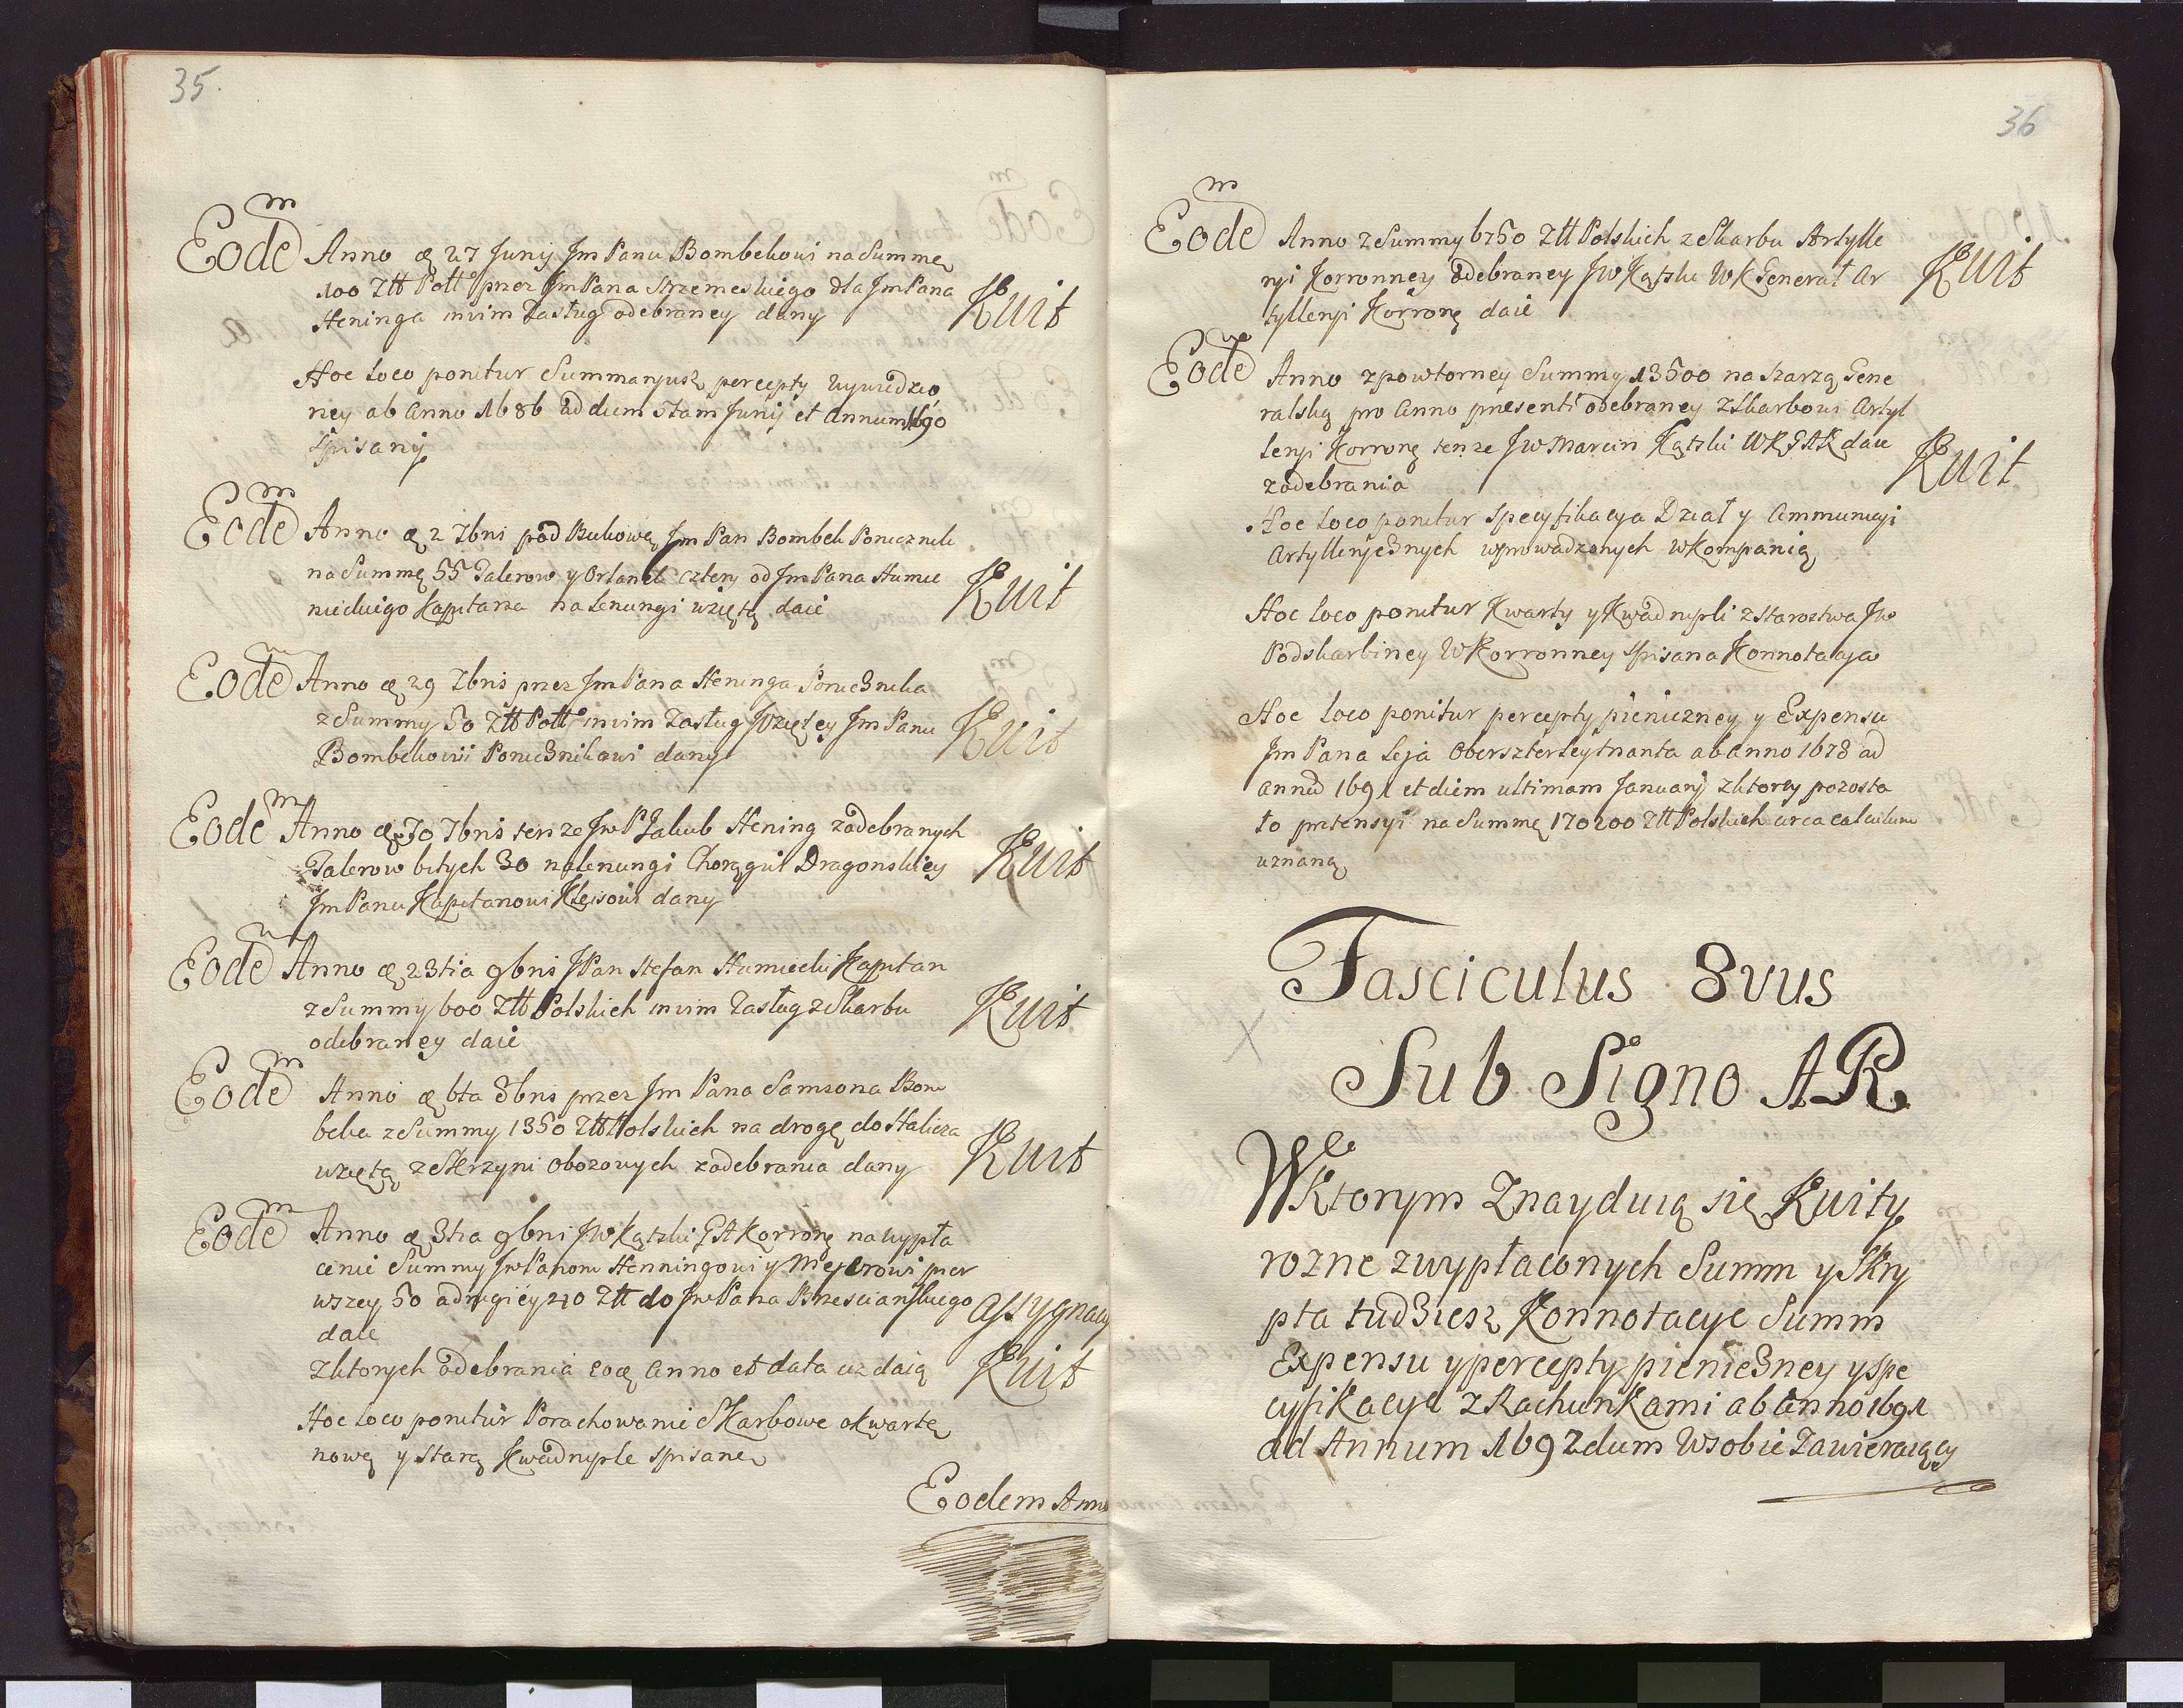 35.
Eodem Anno 27 Junij Jm Panu Bombekowi na Summę
100 Ztt Poll przez Jm Pana Strzemeskiego dla Jm Pana
Heninga inuim Zasług odebraney dany Kwit
Hoc loco ponitur Summaryusz percepty
ney ab Anno 1686 ad diem Junij et Annum 1690
Spisany
Eodem Anno 2 7bris pod Bukową Jm Pan Bombek Porucznik
na Summę 55 Talerow y Ortanek cztery od Jm Pana Humie
nieckiego Kapitana na lenungi wziętą daie Kwit
Eodem Anno 29 7bris przez Jm Pana Heninga Porucznika
z Summy 50 Ztt Poll inuim Zasług Wziętey Jm Panu
Bombekowi Porucznikowi dany Kwit
Eodem Anno 30 7bris tenze Jm P Jakub Hening z odebranych
Talerow bitych 30 na lenungi Chorągwi Dragonskiey
Jm Panu Kapitanowi Kleisowi dany Kwit
Eodem Anno 23tia 9bris JPan Stefan Humiecki Kapitan
z Summy 600 Ztt Polskich inuim Zasług z Skarbu
odebraney daie Kwit
Eodem Anno 6ta 8bris przez Jm Pana Samsona Bom
beka z Summy 1350 Ztt Polskich na drogę do Halicza
wziętą z Skrzyni Obozowych z odebrania dany Kwit
Eodem Anno 3tia 9bri JW Kątzki G A Korronę na wypła
cenie Summy Jm Panom Henningowi y Meyerowi pier
wszey 50 a drugiey 210 Ztt do Jm Pana Brzescianskiego Assygnacy
daie
z ktorych odebrania eoq Anno et data daią Kwit
Hoc loco ponitur Porachowanie Skarbowe o kwartę
nową y starą Kwadruple spisane
Eodem Anno
36
Eodem Anno z Summy 6750 Ztt Polskich z Skarbu Artylle
ryi Korronney odebraney JW Kątzki WK Generał Ar
tylleryi Korronę daie Kwit
Eodem Anno z powtorney Summy 13500 na Szarzą Gene
ralską pro Anno præsenti odebraney z Skarbowi Artyl
leryi Korronę tenze JW Marcin Kątzki WK G A K daie
z odebrania Kwit
Hoc loco ponitur Specyfikacya Dział y Ammunicyi
Artylleryiednych wprowadzonych w Kompanią
Hoc loco ponitur Kwarty y Kwadrupli z Starostwa JW
Podskarbiney W Korronney spisana Konnotacya
Hoc loco ponitur percepty pieniezney y Expensu
Jm Pana Leja Obersterleytnanta ab Anno 1678 ad
annū 1691 et diem ultimam Januarij z ktorey pozosta
ło pretensyi na Summę 170200 Ztt Polskich circa calculum
uznaną
Fasciculus 8vus
Sub Signo AR
W Ktorym Znayduią się Kwity
rozne z wypłaconych Summ y Skry
pta tudziesz Konnotacye Summ
Expensu y percepty pieniezney y Spe
cyfikacye z Rachunkami ab anno 1691
ad Annum 1692dum W sobie Zawieraiący